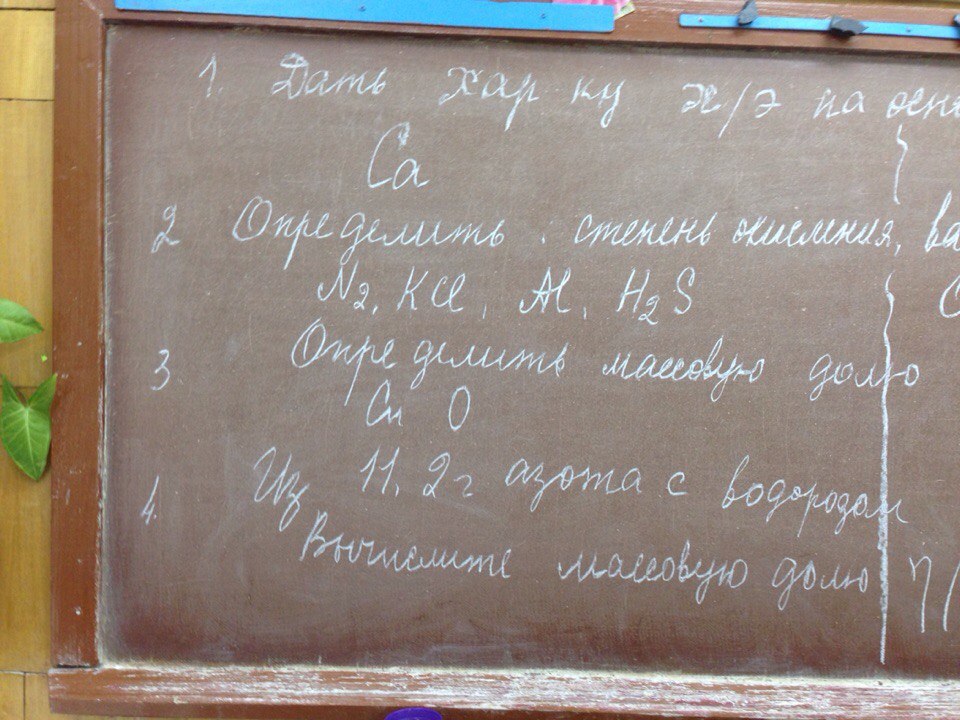 1. Дать хар ку х/э на осно
Ca
2 Определить степень окисления, ва
N2, KCl, Al, H2S
3. Определить массовую долю
Cu O
4. Из 11,2 г азота с водородом
Вычислите массовую долю η/